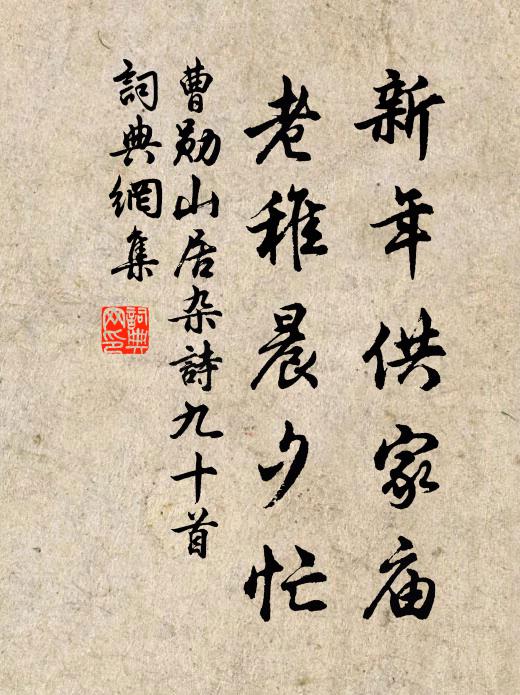 新年供家庙
老稚晨夕忙
曹勋山居杂詩九十首
詞典網集
詞典網印